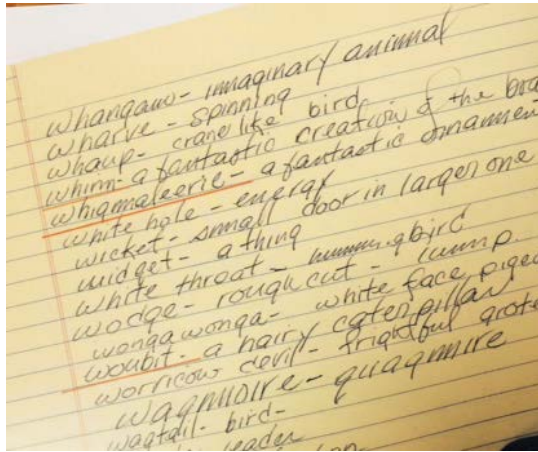 whangam - imaginary animal
wharve - spinning
whaup - crane like bird
whim - a fantastic creation of the
whigmaleerie - a fantastic ornament
white hole - energy
wicket - small door in larger one
widget - a thing
white throat - bird
wodge - rough cut - lump
wonga wonga - white face
woubit - a hairy caterpillar
worricow devil - frightful
wagmoire - quagmire
wagtail - bird -
leader